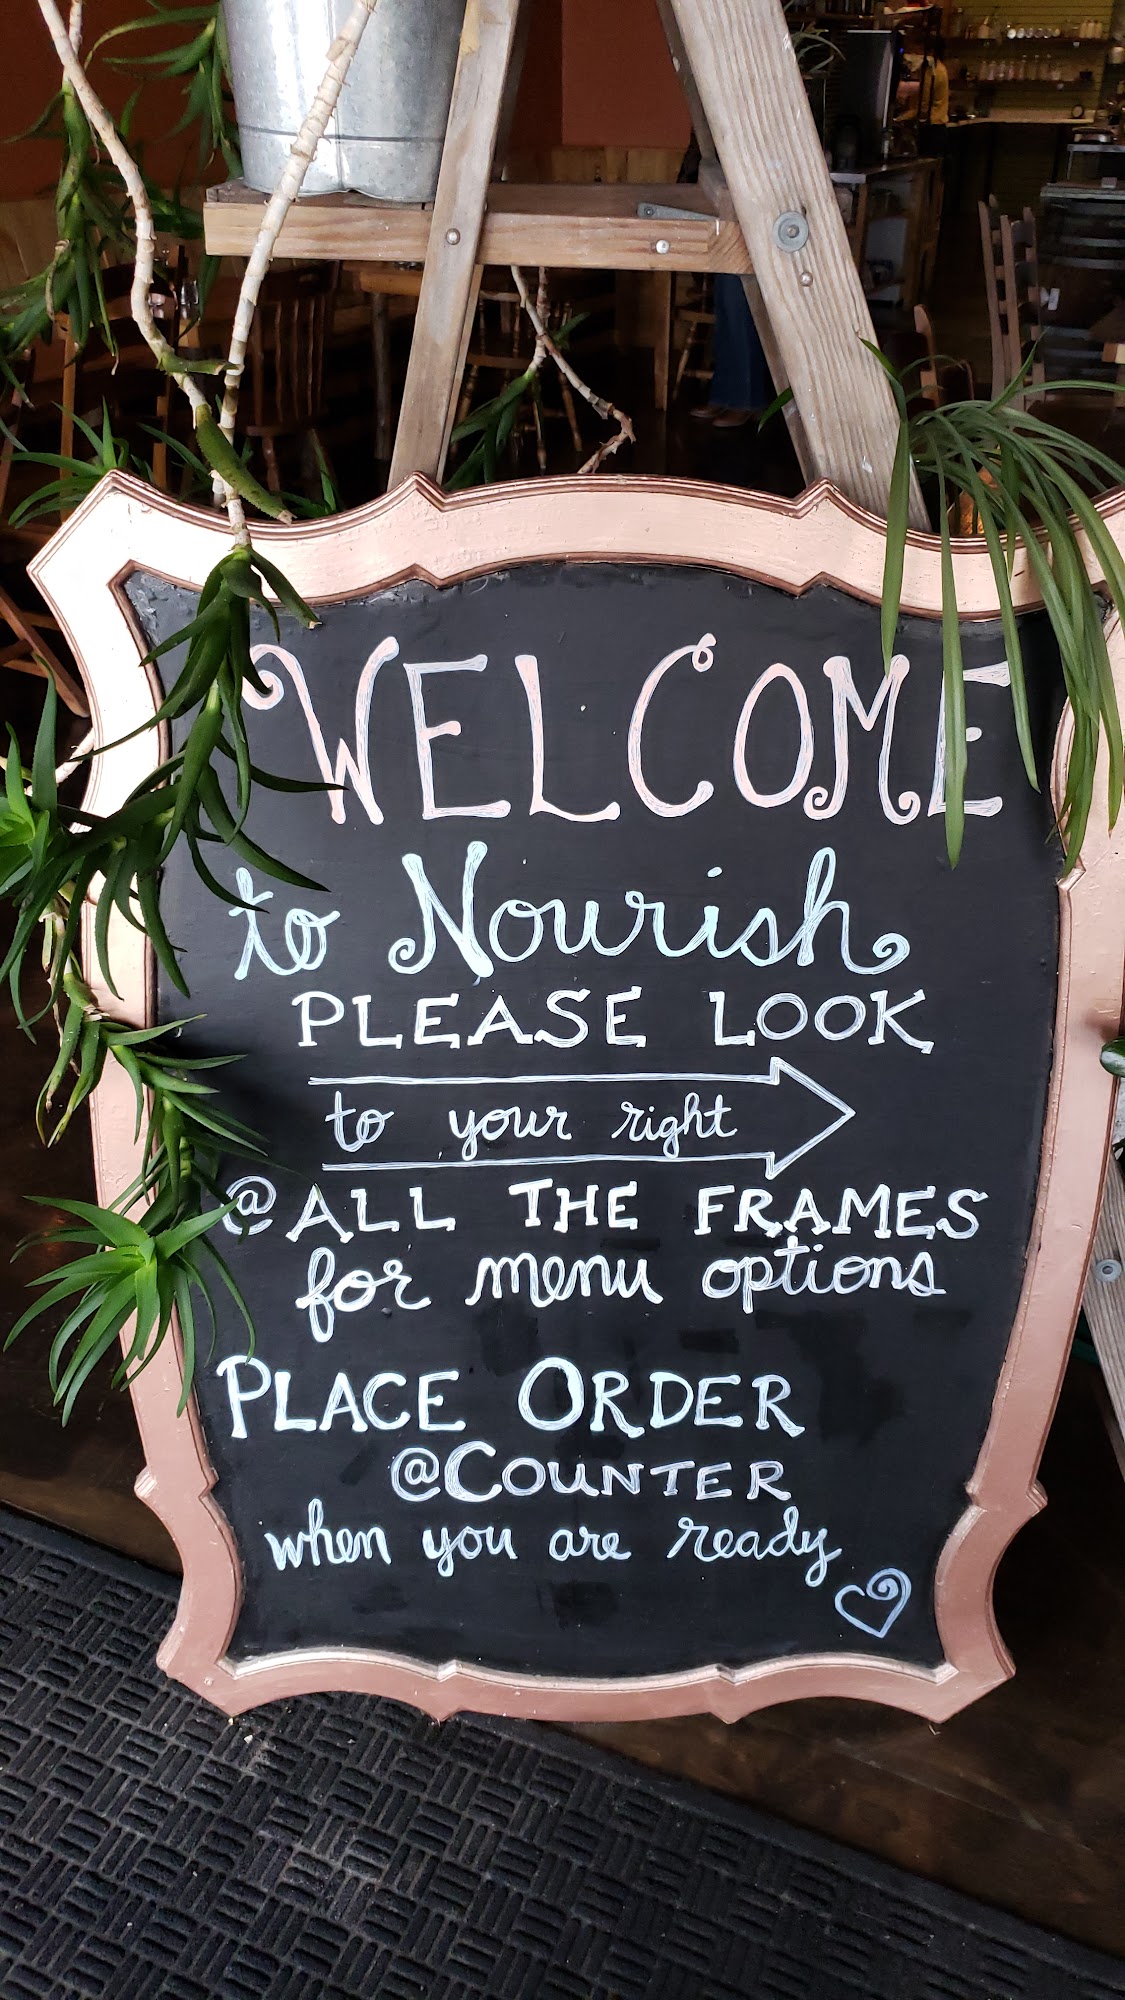 WELCOME
to Nourish
PLEASE LOOK
to your right
@ALL THE FRAMES
for menu options
PLACE ORDER
@COUNTER
when you are ready